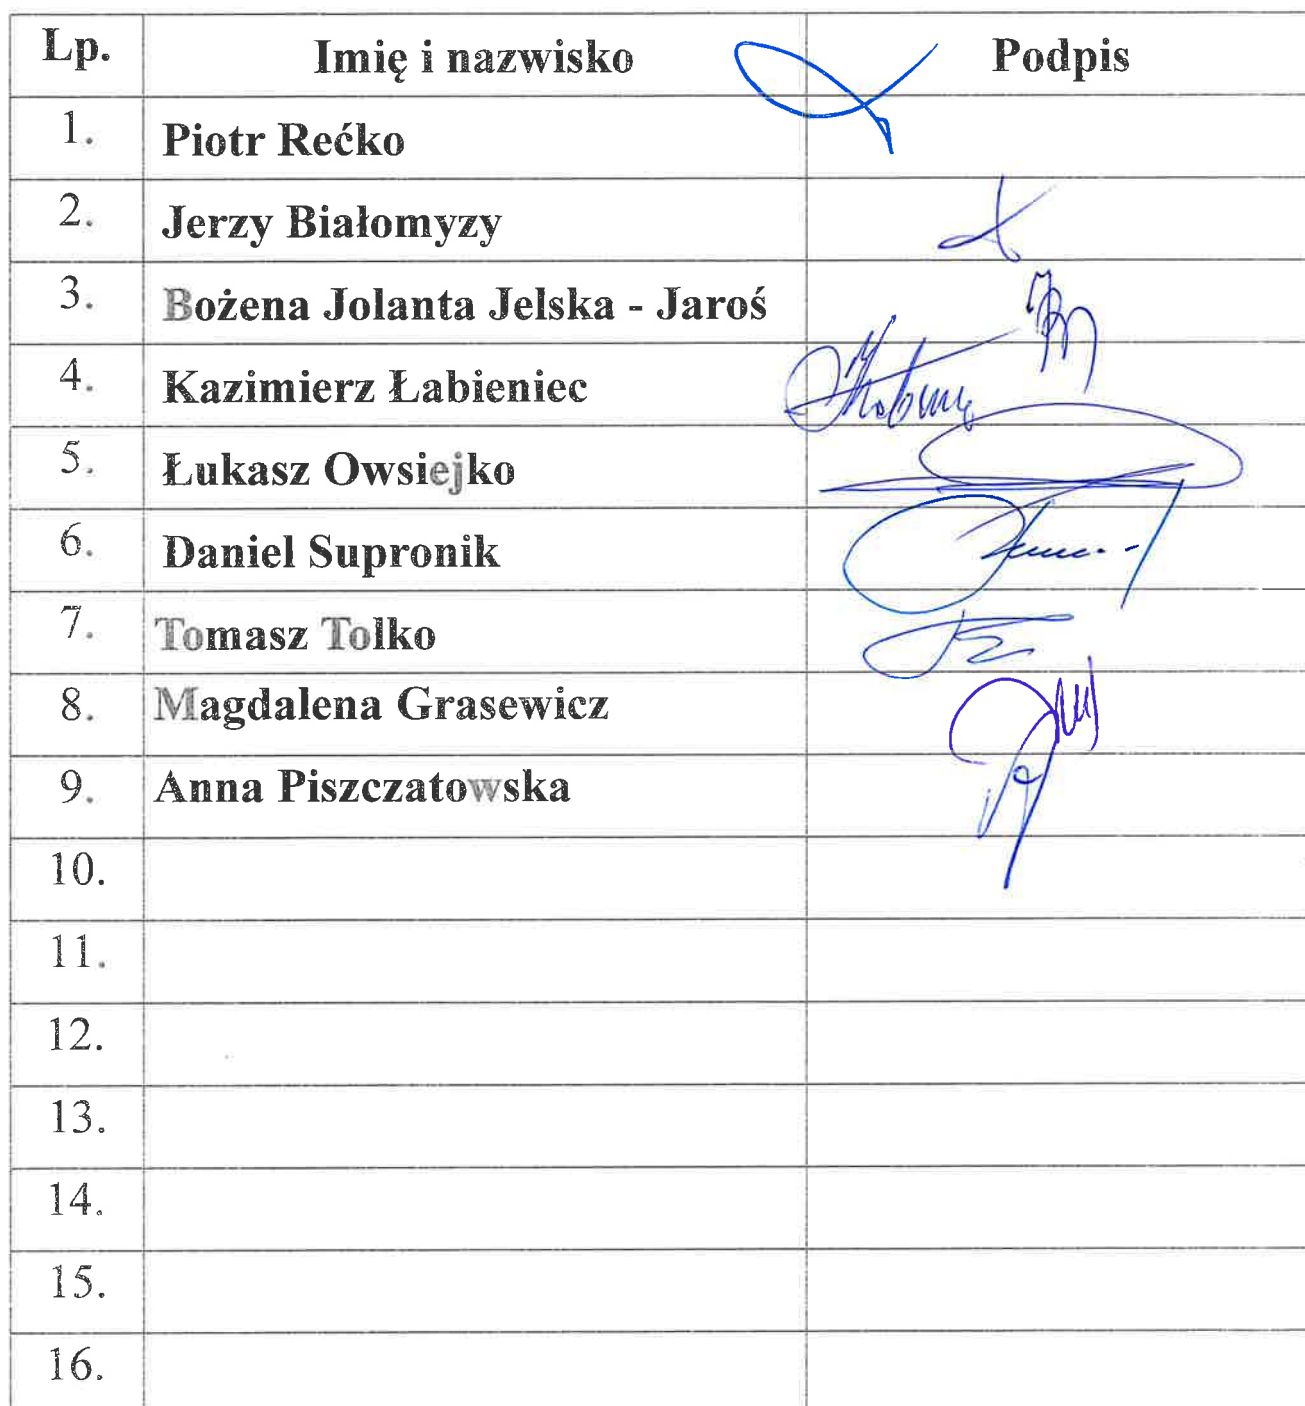 Lp. Imię i nazwisko Podpis
1. Piotr Rećko
2. Jerzy Białomyzy
3. Bożena Jolanta Jelska - Jaroś
4. Kazimierz Łabieniec
5. Łukasz Owsiejko
6. Daniel Supronik
7. Tomasz Tolko
8. Magdalena Grasewicz
9. Anna Piszczatowska
10.
11.
12.
13.
14.
15.
16.